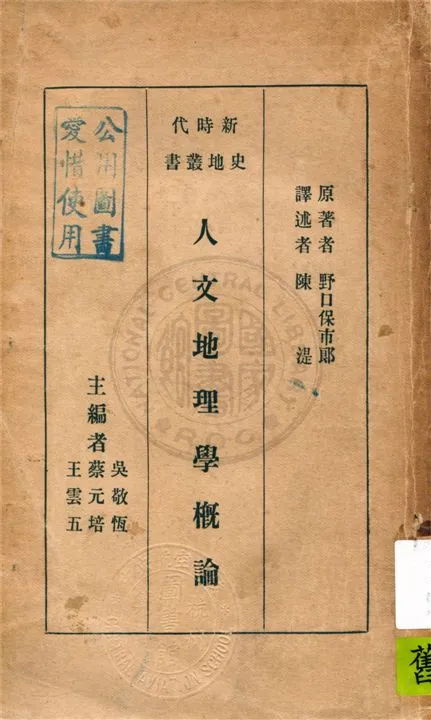 原著者 野口保市郎
譯述者 陳湜
新時代
史地叢書
人文地理學概論
主編者
吳敬恆
蔡元培
王雲五
公用圖書
愛惜使用
NATIONAL CENTRAL LIBRARY
舊